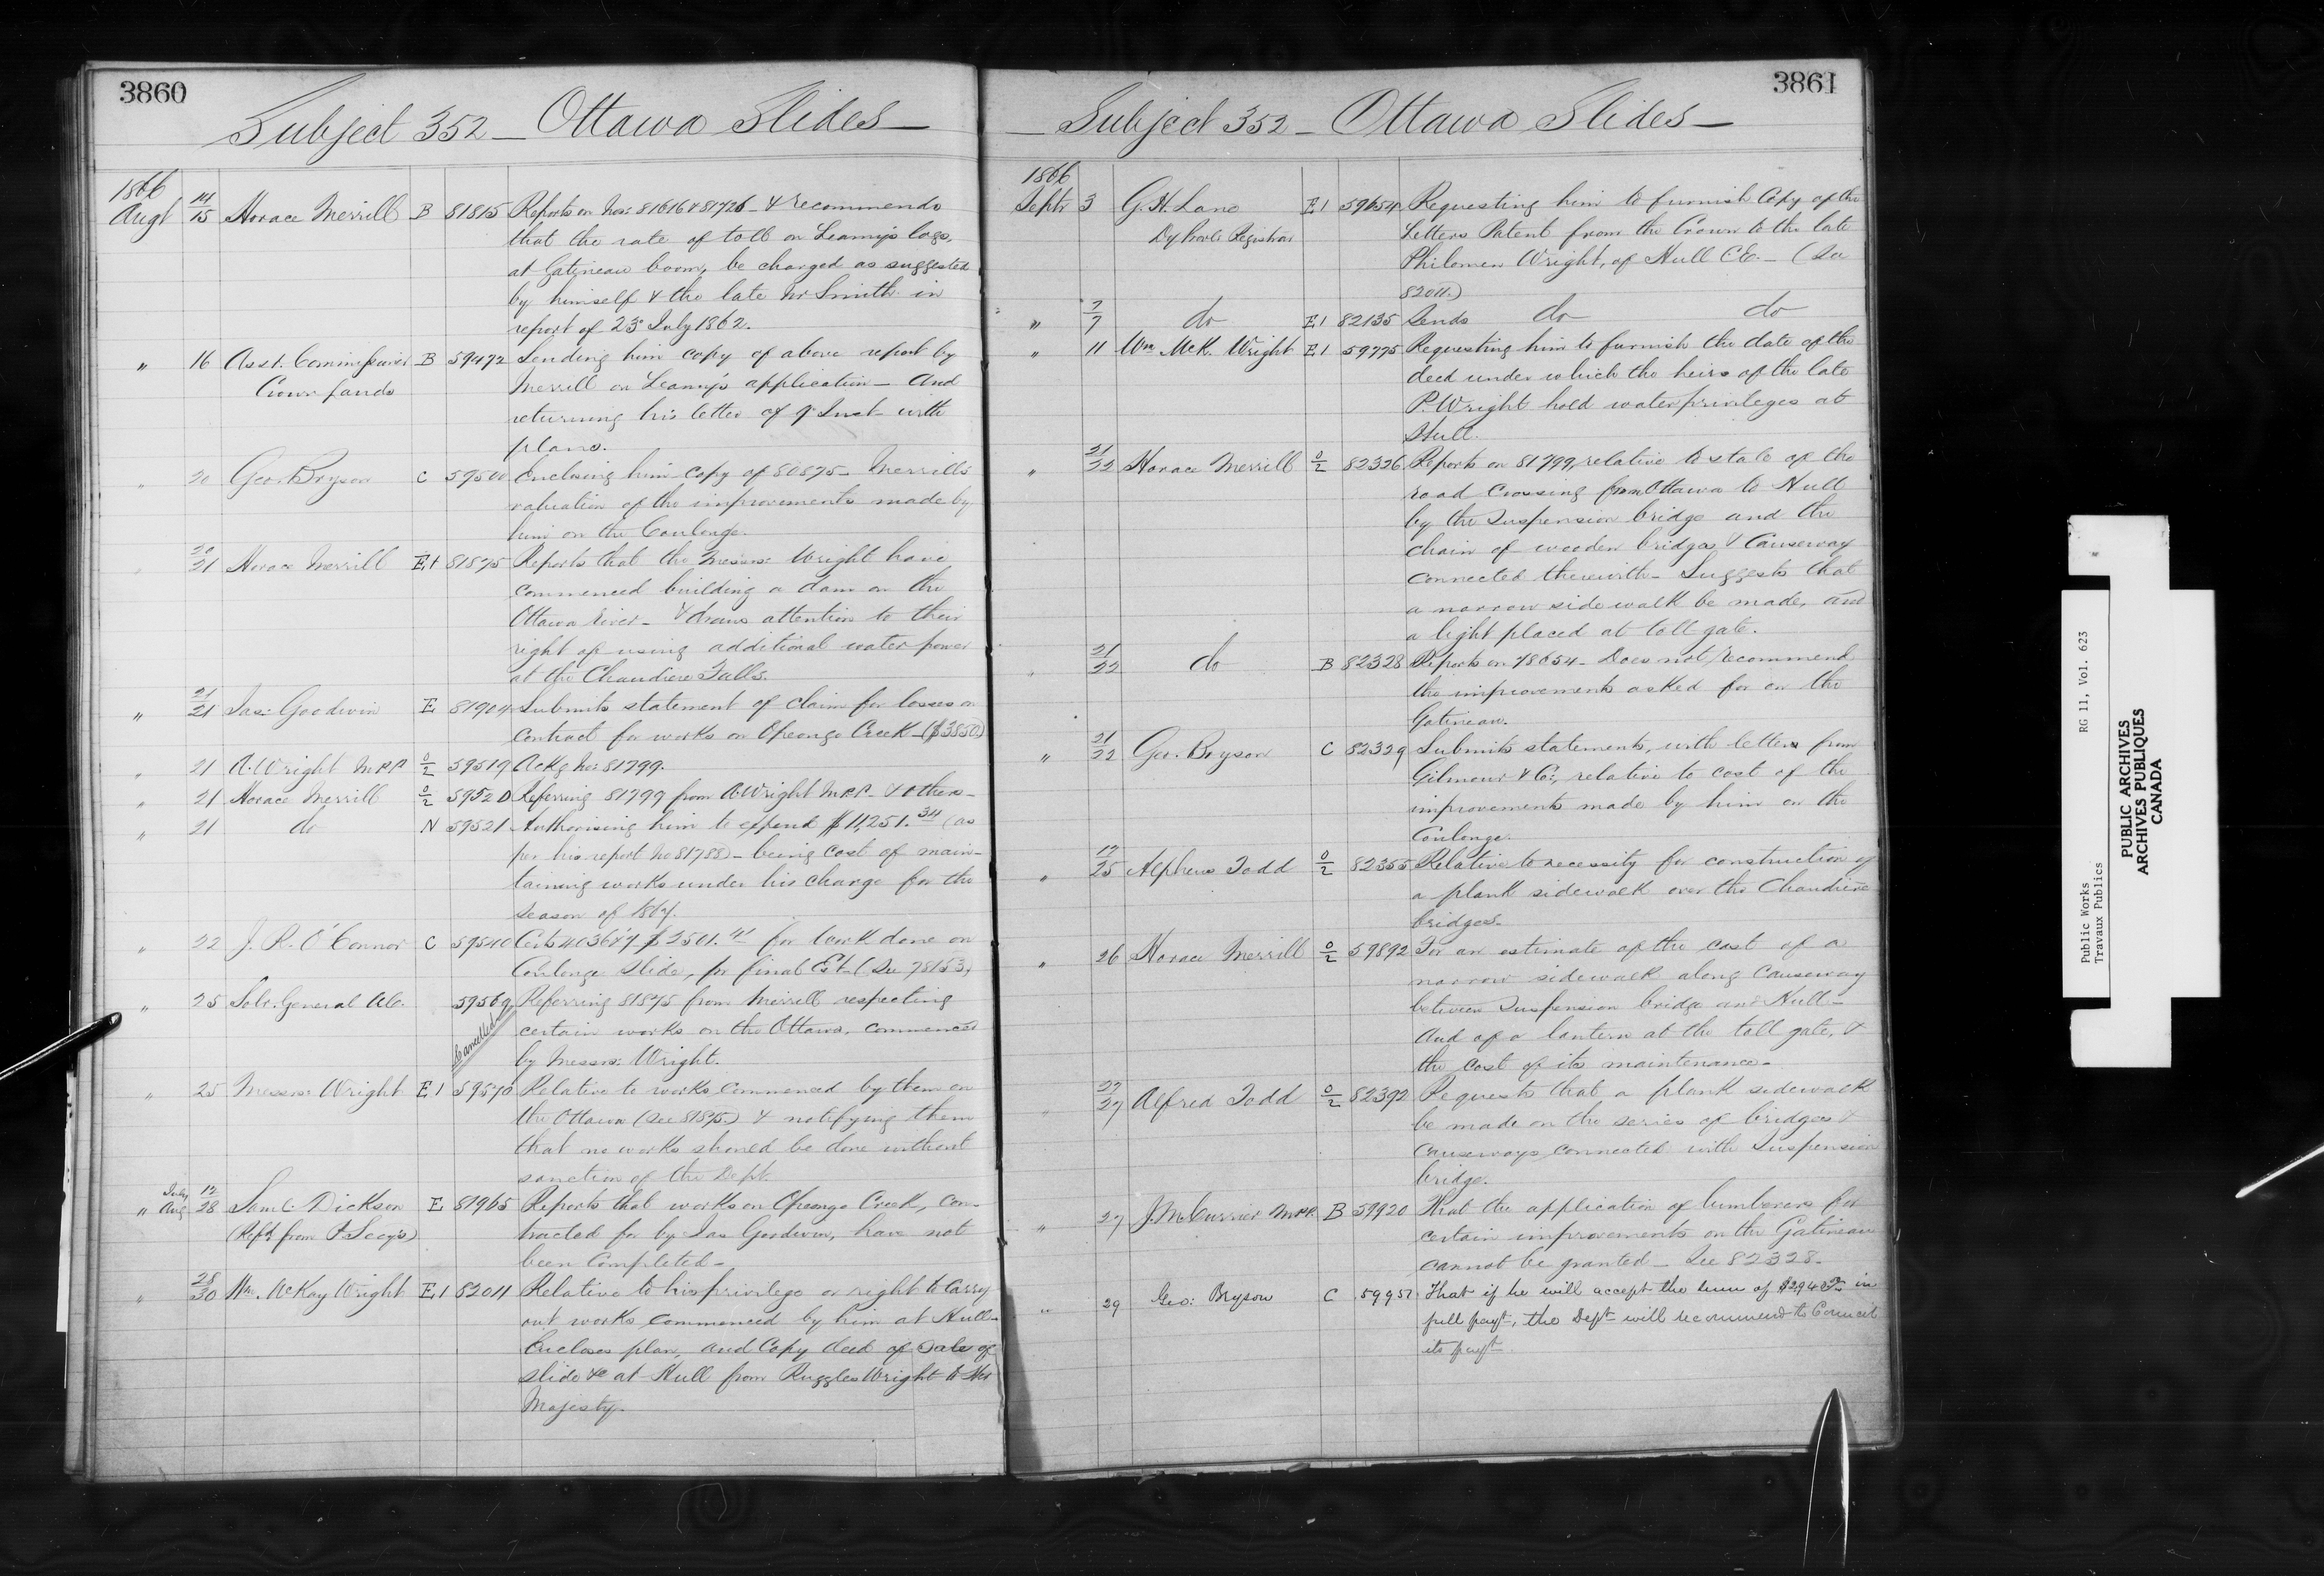 3860
Subject 352 — Ottawa Slides —
1866
Augt 14/15 Horace Merrill B 81815 Reports on Nos 81616 & 81726 — & recommends
that the rate of toll on Leamy's logs,
at Gatineau boom, be charged as suggested
by himself & the late Mr Smith in
report of 23 July 1862.
" 16 Asst. Commissioner B 59472 Sending him copy of above report by
Crown Lands Merrill on Leamy's application — and
returning his letter of 9 Inst with
plans.
" 20 Geo. Bryson C 59500 Enclosing him copy of 80875 — Merrill's
valuation of the improvements made by
him on the Coulonge.
" 20/21 Horace Merrill E1 81875 Reports that the Messrs: Wright have
commenced building a dam on the
Ottawa River — & draws attention to their
right of using additional water power
at the Chaudiere Falls.
" 21/21 Jas: Goodwin E 81904 Submits statement of claim for losses on
contract for works on Opeongo Creek — ($3850)
" 21 A. Wright M.P.P. 0/2 59519 Ackg No: 81799.
" 21 Horace Merrill 0/2 59520 Referring 81799 from A. Wright M.P.P. & others —
" 21 do N 59521 Authorising him to expend $11,251.34 (as
per his report No 81788) — being cost of main-
taining works under his charge for the
season of 1867.
" 22 J. R. O'Connor C 59540 Certs 4036 & 7 $2501.41 for work done on
Coulonge Slide, pr final Est. (See 78153)
" 25 Solr. General &c. 59569 Referring 81875 from Merrill respecting
Cancelled certain works on the Ottawa, commenced
by Messrs: Wright.
" 25 Messrs: Wright E1 59570 Relative to works commenced by them on
the Ottawa (See 81875) & notifying them
that no works should be done without
sanction of the Dept.
" July Aug 17/28 Saml. Dickson E 81965 Reports that works on Opeongo Creek, con-
(Refd from P. Secy's) tracted for by Jas Goodwin, have not
been completed —
" 28/30 Wm. McKay Wright E1 82011 Relative to his privilege or right to carry
out works commenced by him at Hull —
Encloses plan, and Copy deed of Sale of
slide &c at Hull from Ruggles Wright to Her
Majesty.
3861
— Subject 352 — Ottawa Slides —
1866
Septr 3 G. H. Lane E1 59654 Requesting him to furnish Copy of the
Dy Provl Registrar Letters Patent from the Crown to the late
Philemon Wright, of Hull C.E. — (See
82011.)
" 7/7 do E1 82135 Sends do do
" 11 Wm McK. Wright E1 59775 Requesting him to furnish the date of the
deed under which the heirs of the late
P. Wright hold water privileges at
Hull.
" 21/22 Horace Merrill 0/2 82326 Reports on 81799, relative to state of the
road crossing from Ottawa to Hull
by the Suspension bridge and the
chain of wooden bridges & Causeway
connected therewith — Suggests that
a narrow side walk be made, and
a light placed at toll gate.
" 21/22 do B 82328 Reports on 78654 — Does not recommend
the improvements asked for on the
Gatineau.
" 21/22 Geo. Bryson C 82329 Submits statements, with letters from
Gilmour & Co:, relative to cost of the
improvements made by him on the
Coulonge.
" 17/25 Alpheus Todd 0/2 82355 Relative to necessity for construction of
a plank sidewalk over the Chaudiere
bridges.
" 26 Horace Merrill 0/2 59892 For an estimate of the cost of a
narrow sidewalk along Causeway
between Suspension bridge and Hull —
And of a lantern at the toll gate, &
the cost of its maintenance —
" 27/27 Alfred Todd 0/2 82392 Requests that a plank sidewalk
be made on the series of bridges &
Causeways connected with Suspension
bridge.
" 27 J. M. Currier M.P.P. B 59920 That the application of lumberers for
certain improvements on the Gatineau
cannot be granted — See 82328 —
" 29 Geo: Bryson C 59957 That if he will accept the sum of in
full payt, the Dept will recommend to Council
its payt
Public Works RG 11, Vol. 623
Travaux Publics
PUBLIC ARCHIVES
ARCHIVES PUBLIQUES
CANADA